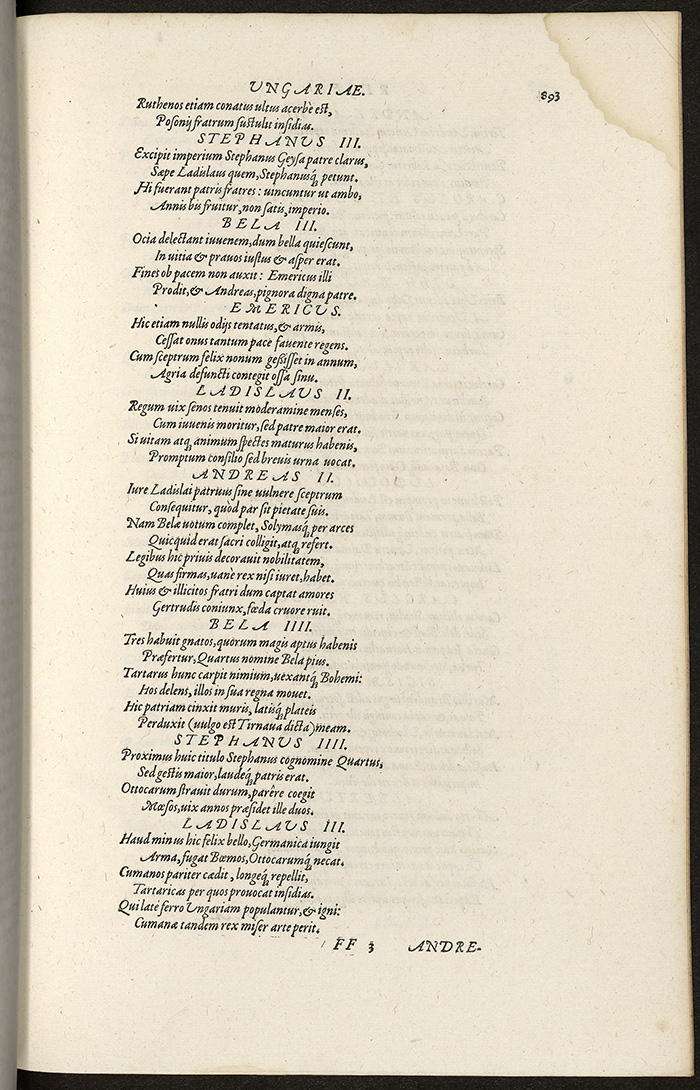 UNGARIAE.
893
Ruthenos etiam conatus ultus acerbè est,
Posonij fratrum sustulit insidias.
STEPHANUS III.
Excipit imperium Stephanus Geysa patre clarus,
Sæpe Ladislaus quem, Stephanusq́ꝫ petunt.
Hi fuerant patris fratres: uincuntur ut ambo,
Annis bis fruitur, non satis, imperio.
BELA III.
Ocia delectant iuuenem, dum bella quiescunt,
In uitia & prauos iustus & asper erat.
Fines ob pacem non auxit: Emericus illi
Prodit, & Andreas, pignora digna patre.
EMERICUS.
Hic etiam nullis odijs tentatus, & armis,
Cessat onus tantum pace fauente regens.
Cum sceptrum felix nonum gessisset in annum,
Agria defuncti contegit ossa sinu.
LADISLAUS II.
Regum uix senos tenuit moderamine menses,
Cum iuuenis moritur, sed patre maior erat.
Si uitam atqꝫ animum spectes maturus habenis,
Promptum consilio sed breuis urna uocat.
ANDREAS II.
Iure Ladislai patruus sine uulnere sceptrum
Consequitur, quòd par sit pietate suis.
Nam Belæ uotum complet, Solymasq́ꝫ per arces
Quicquid erat sacri colligit, atqꝫ refert.
Legibus hic priuis decorauit nobilitatem,
Quas firmas, uanè rex nisi iuret, habet.
Huius & illicitos fratri dum captat amores
Gertrudis coniunx, fœda cruore ruit.
BELA IIII.
Tres habuit gnatos, quorum magis aptus habenis
Præfertur, Quartus nomine Bela pius.
Tartarus hunc carpit nimium, uexantq́ꝫ Bohemi:
Hos delens, illos in sua regna mouet.
Hic patriam cinxit muris, latisq́ꝫ plateis
Perduxit (uulgo est Tirnaua dicta) meam.
STEPHANUS IIII.
Proximus huic titulo Stephanus cognomine Quartus,
Sed gestis maior, laudeq́ꝫ patris erat.
Ottocarum strauit durum, parêre coegit
Mœsos, uix annos præsidet ille duos.
LADISLAUS III.
Haud minus hic felix bello, Germanica iungit
Arma, fugat Bœmos, Ottocarumq́ꝫ necat.
Cumanos pariter cædit, longeq́ꝫ repellit,
Tartaricas per quos prouocat insidias.
Qui late ferro Ungariam populantur, & igni:
Cumanæ tandem rex miser arte perit.
FF 3 ANDRE-